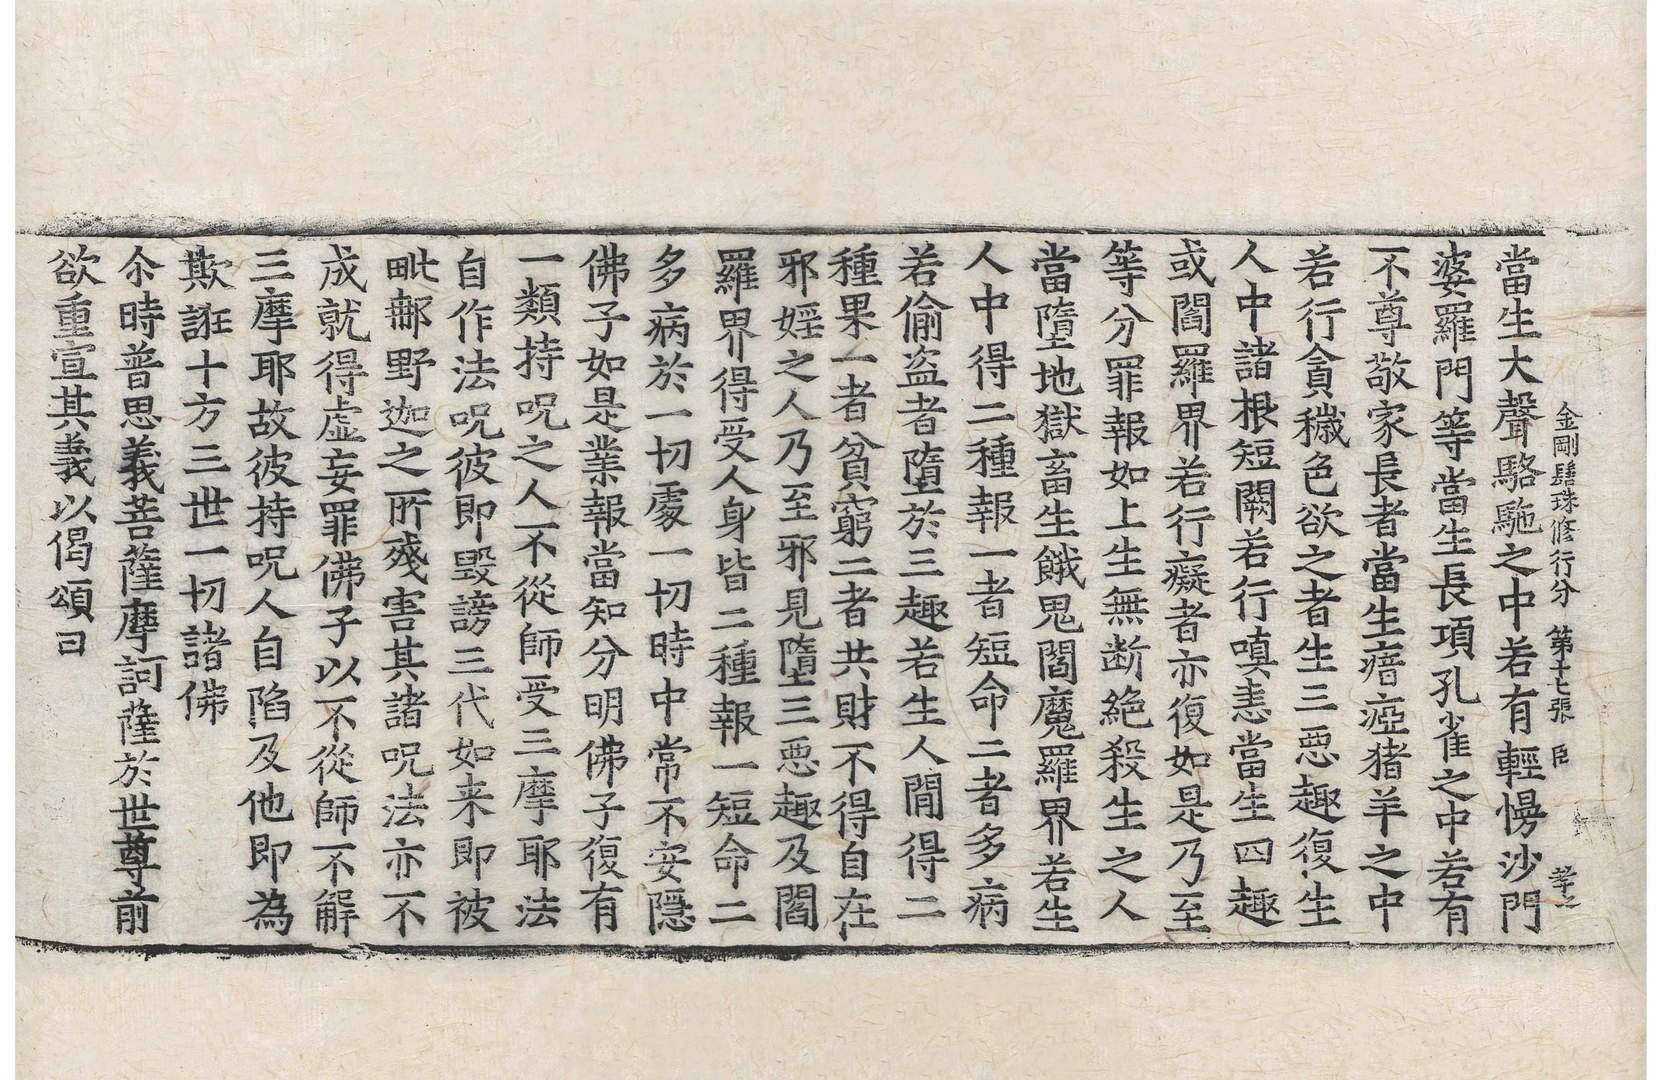 金剛髻珠修行分 第十七張 臣
當生大聲駱駞之中若有輕慢沙門
婆羅門等當生長項孔雀之中若有
不尊敬家長者當生瘖瘂猪羊之中
若行貪穢色欲之者生三惡趣復生
人中諸根短闕若行嗔恚當生四趣
或閻羅界若行癡者亦復如是乃至
等分罪報如上生無断絶殺生之人
當墮地獄畜生餓鬼閻魔羅界若生
人中得二種報一者短命二者多病
若偷盗者墮於三趣若生人間得二
種果一者貧窮二者共財不得自在
邪婬之人乃至邪見墮三惡趣及閻
羅界得受人身皆二種報一短命二
多病於一切處一切時中常不安隱
佛子如是業報當知分明佛子復有
一類持呪之人不從師受三摩耶法
自作法呪彼即毀謗三代如来即被
毗䣝野迦之所殘害其諸呪法亦不
成就得虛妄罪佛子以不從師不解
三摩耶故彼持呪人自陷及他即為
欺誑十方三世一切諸佛
尒時普思義菩薩摩訶薩於世尊前
欲重宣其義以偈頌曰